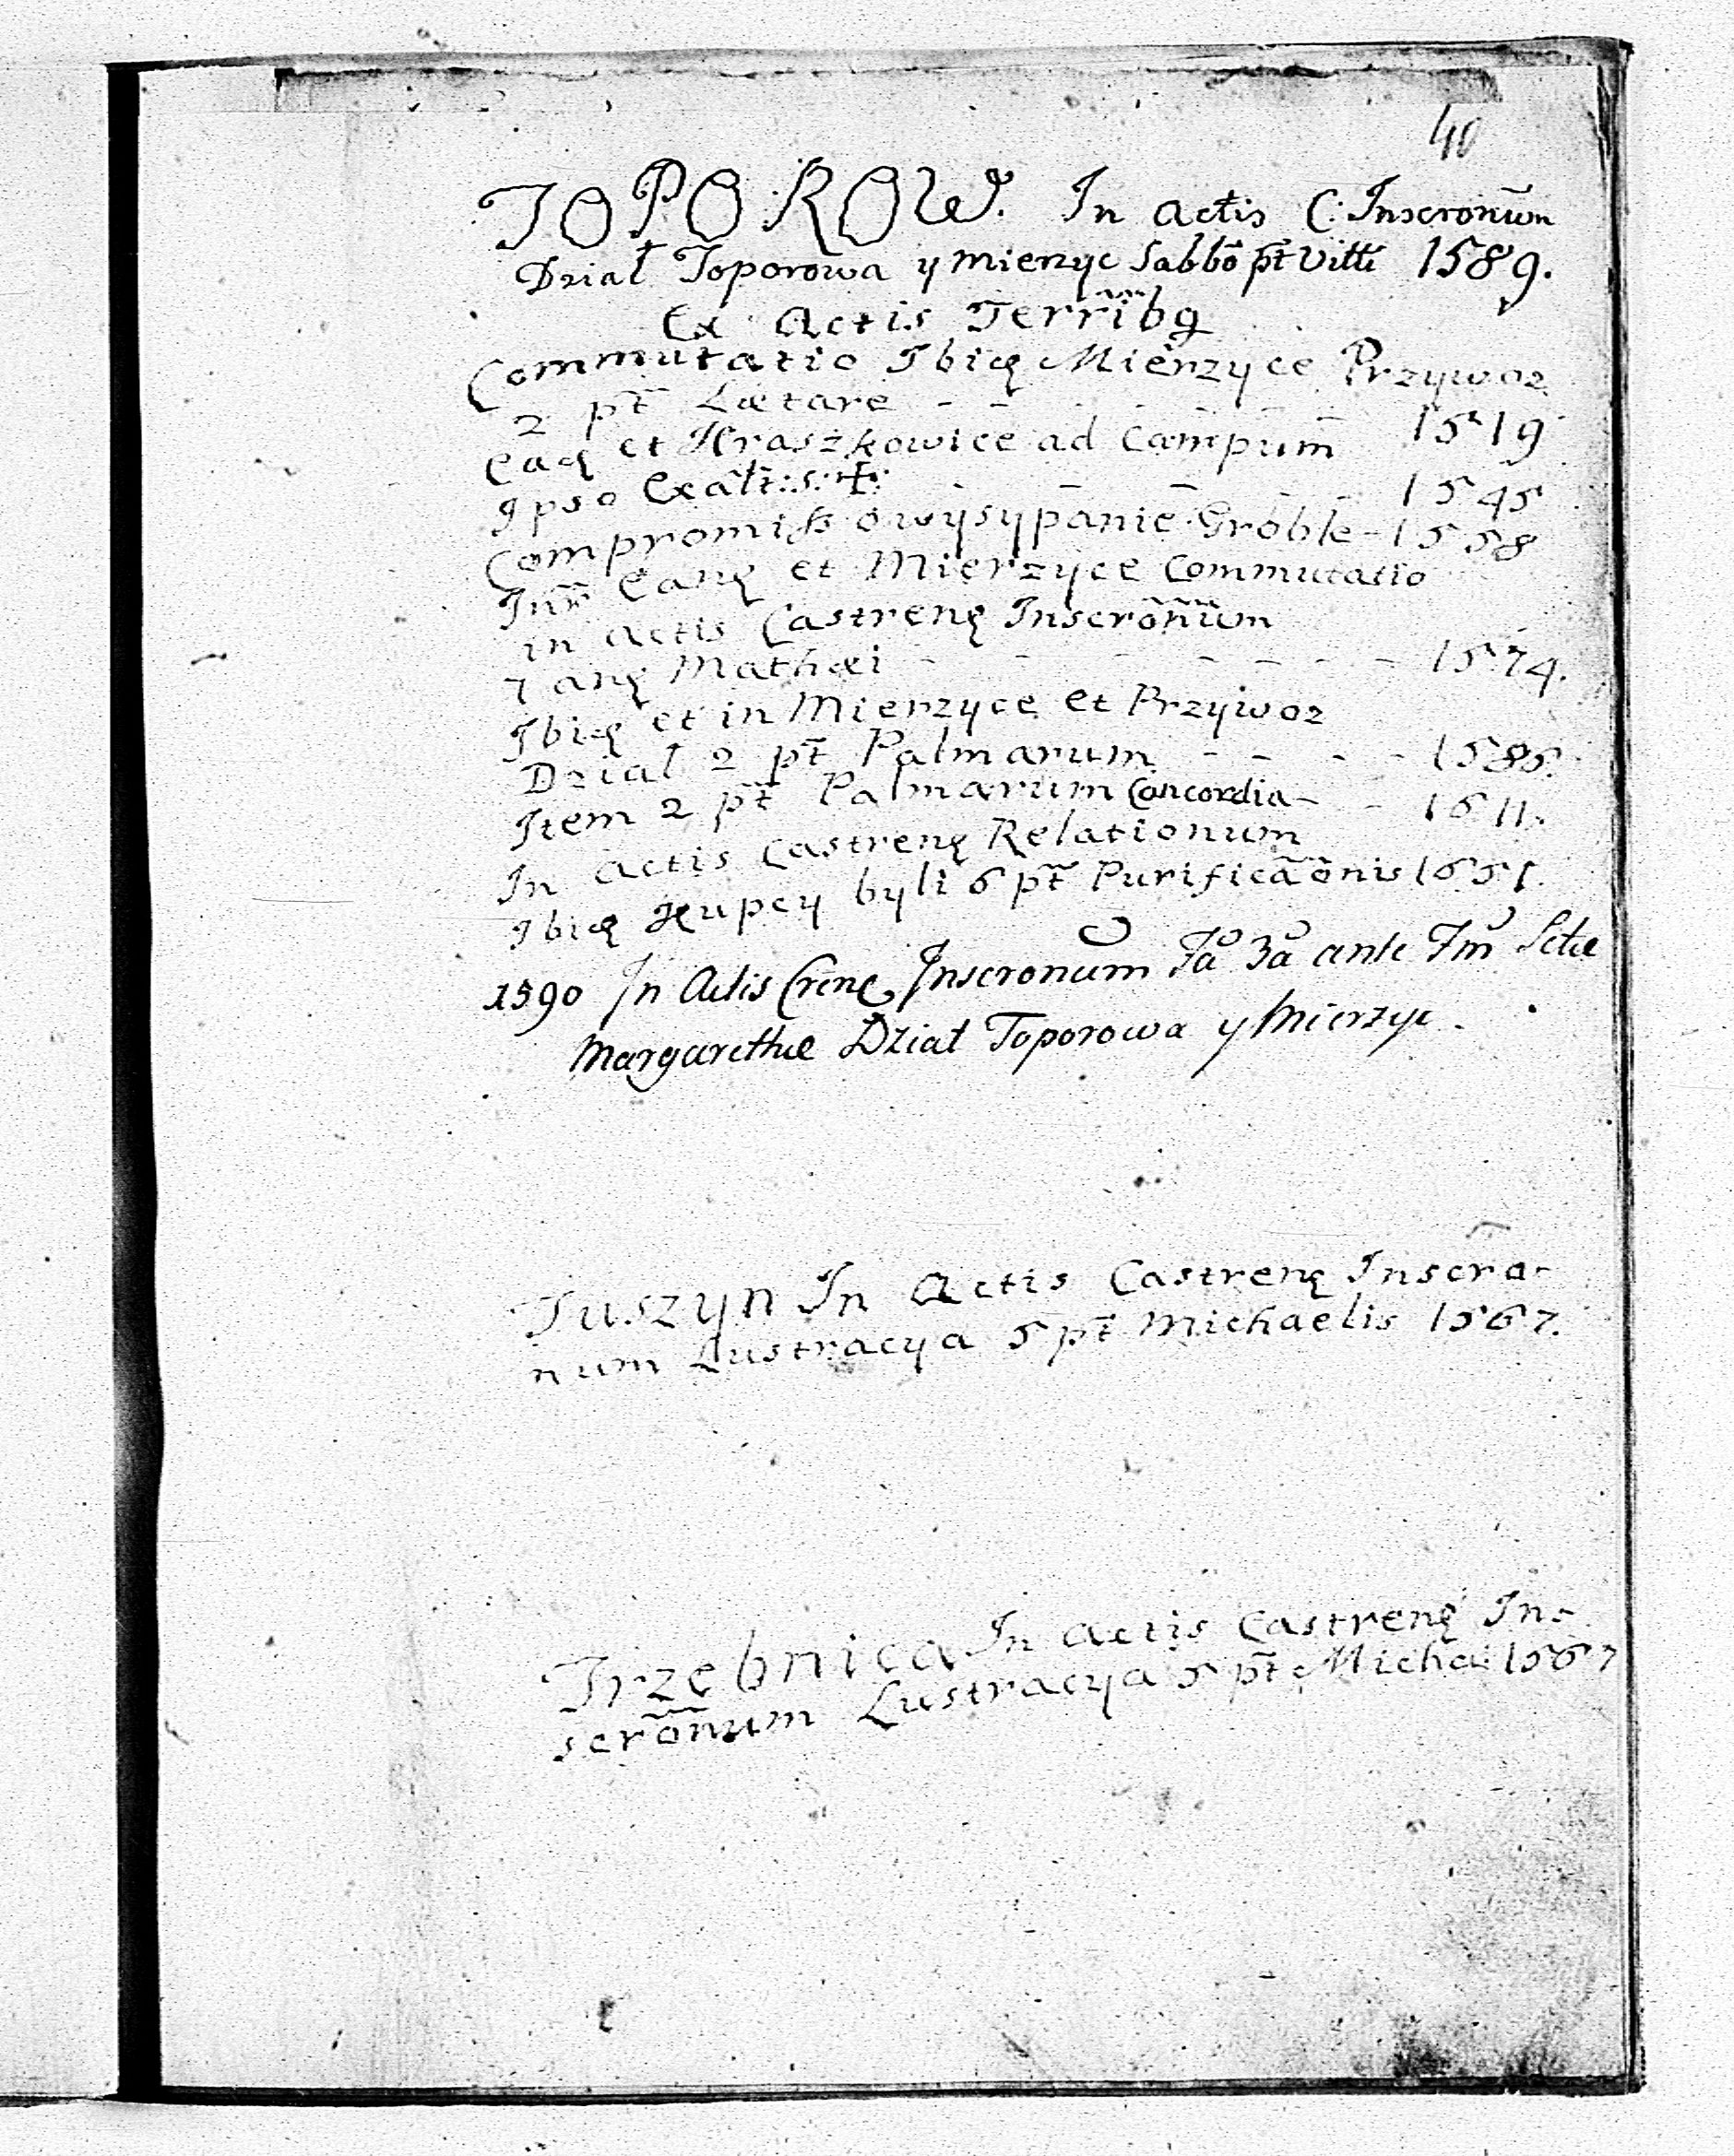 40
TOPOROW. In Actis C: Inscronum
Dział Toporowa y Mierzyc Sabbo pt Viti 1589.
Ex Actis Terribq
Commutatio Ibiq Mierzyce Przywoz
2 pt Lætare - - - - - - - 1519
Eaq et Kraszkowice ad Campum
Ipso Exalt: S: ✠: - - - - - 1545
Compromiss o wysypanie Groble - 1558
Inr Eanq et Mierzyce Commutatio
in Actis Castrenq Inscronum
7 anq Mathæi - - - - - - 1574.
Ibiq et in Mierzyce et Przywoz
Dział 2 pt Palmarum - - - - 1585.
Item 2 pt Palmarum Concordia - - 1611.
In Actis Castrenq Relationum
Ibiq Kupcy byli 6 pt Purificaonis 1651.
1590 In Actis Crenq Inscronum Fa 3a ante Fm Sctæ
Margarethæ Dział Toporowa y Mierzyc.
Tuszyn In Actis Castrenq Inscro-
num Lustracya 5 pt Michaelis 1567.
Trzebnica In Actis Castrenq In-
scronum Lustracya 5 pt Micha: 1567